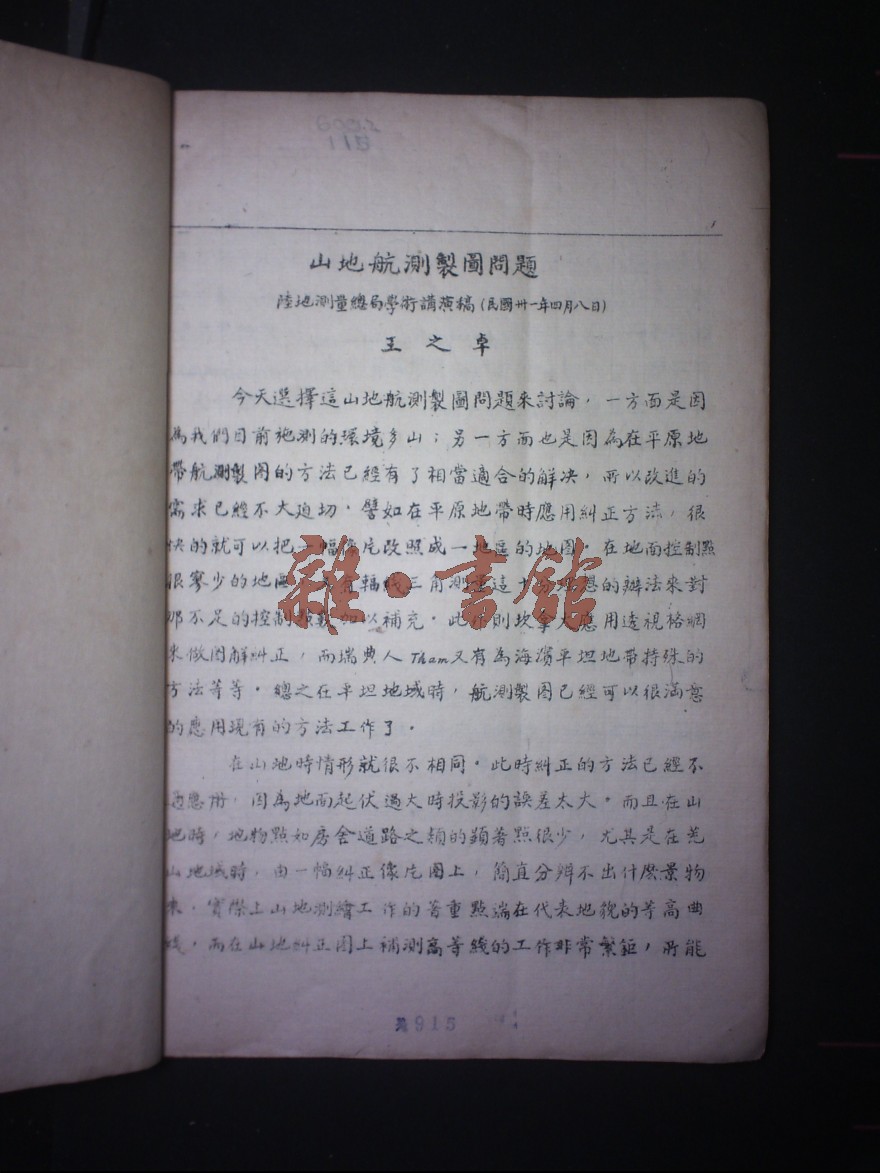 1
山地航測製圖問題
陸地測量總局學術講演稿(民國卅一年四月八日)
王之卓
今天選擇這山地航測製圖問題來討論，一方面是因
為我們目前施測的環境多山；另一方面也是因為在平原地
帶航測製图的方法已經有了相當適合的解决，所以改進的
需求已經不大迫切．譬如在平原地帶時應用糾正方法，很
快的就可以把一幅像片改照成一地區的地图．在地面控制點
很寥少的地區 輻綫三角測量這十分理想的辦法來對
那不足的控制 加以補充．此 則坎拿大應用透視格網
來做图解糾正，而瑞典人Tham又有為海濱平坦地帶特殊的
方法等等．總之在平坦地域時，航測製图已經可以很滿意
的應用現有的方法工作了．
在山地時情形就很不相同．此時糾正的方法已經不
適應用，因為地面起伏過大時投影的誤差太大．而且在山
地時，地物點如房舍道路之類的顯著點很少，尤其是在荒
山地域時，由一幅糾正像片图上，簡直分辨不出什麽景物
來．實際上山地測繪工作的著重點端在代表地貌的等高曲
綫，而在山地糾正图上補測高等綫的工作非常繁鉅，所能
915
雜·書館